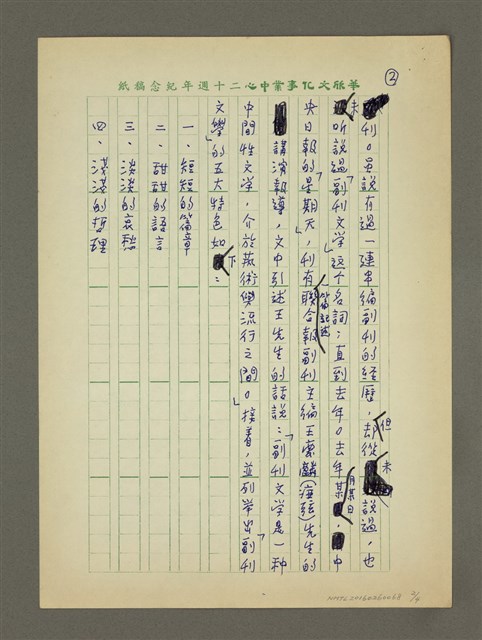 ②
華欣文化事業中心二十週年紀念稿紙
刊。虽說有過一連串編副刊的经歷，但却從未說過，也
未听說過「副刊文学」这个名詞；直到去年。去年某月某日，中
央日報的「星期天」，刊有一篇記述聯合報副刊主编王慶麟(瘂弦)先生的
講演報導，文中引述王先生的話說：「副刊文学是一种
中間性文学，介於藝術與流行之間。」接着，並列举出「副刊
文學」的五大特色如下：
一、短短的篇章
二、甜甜的語言
三、淡淡的哀愁
四、淺淺的哲理
2/4